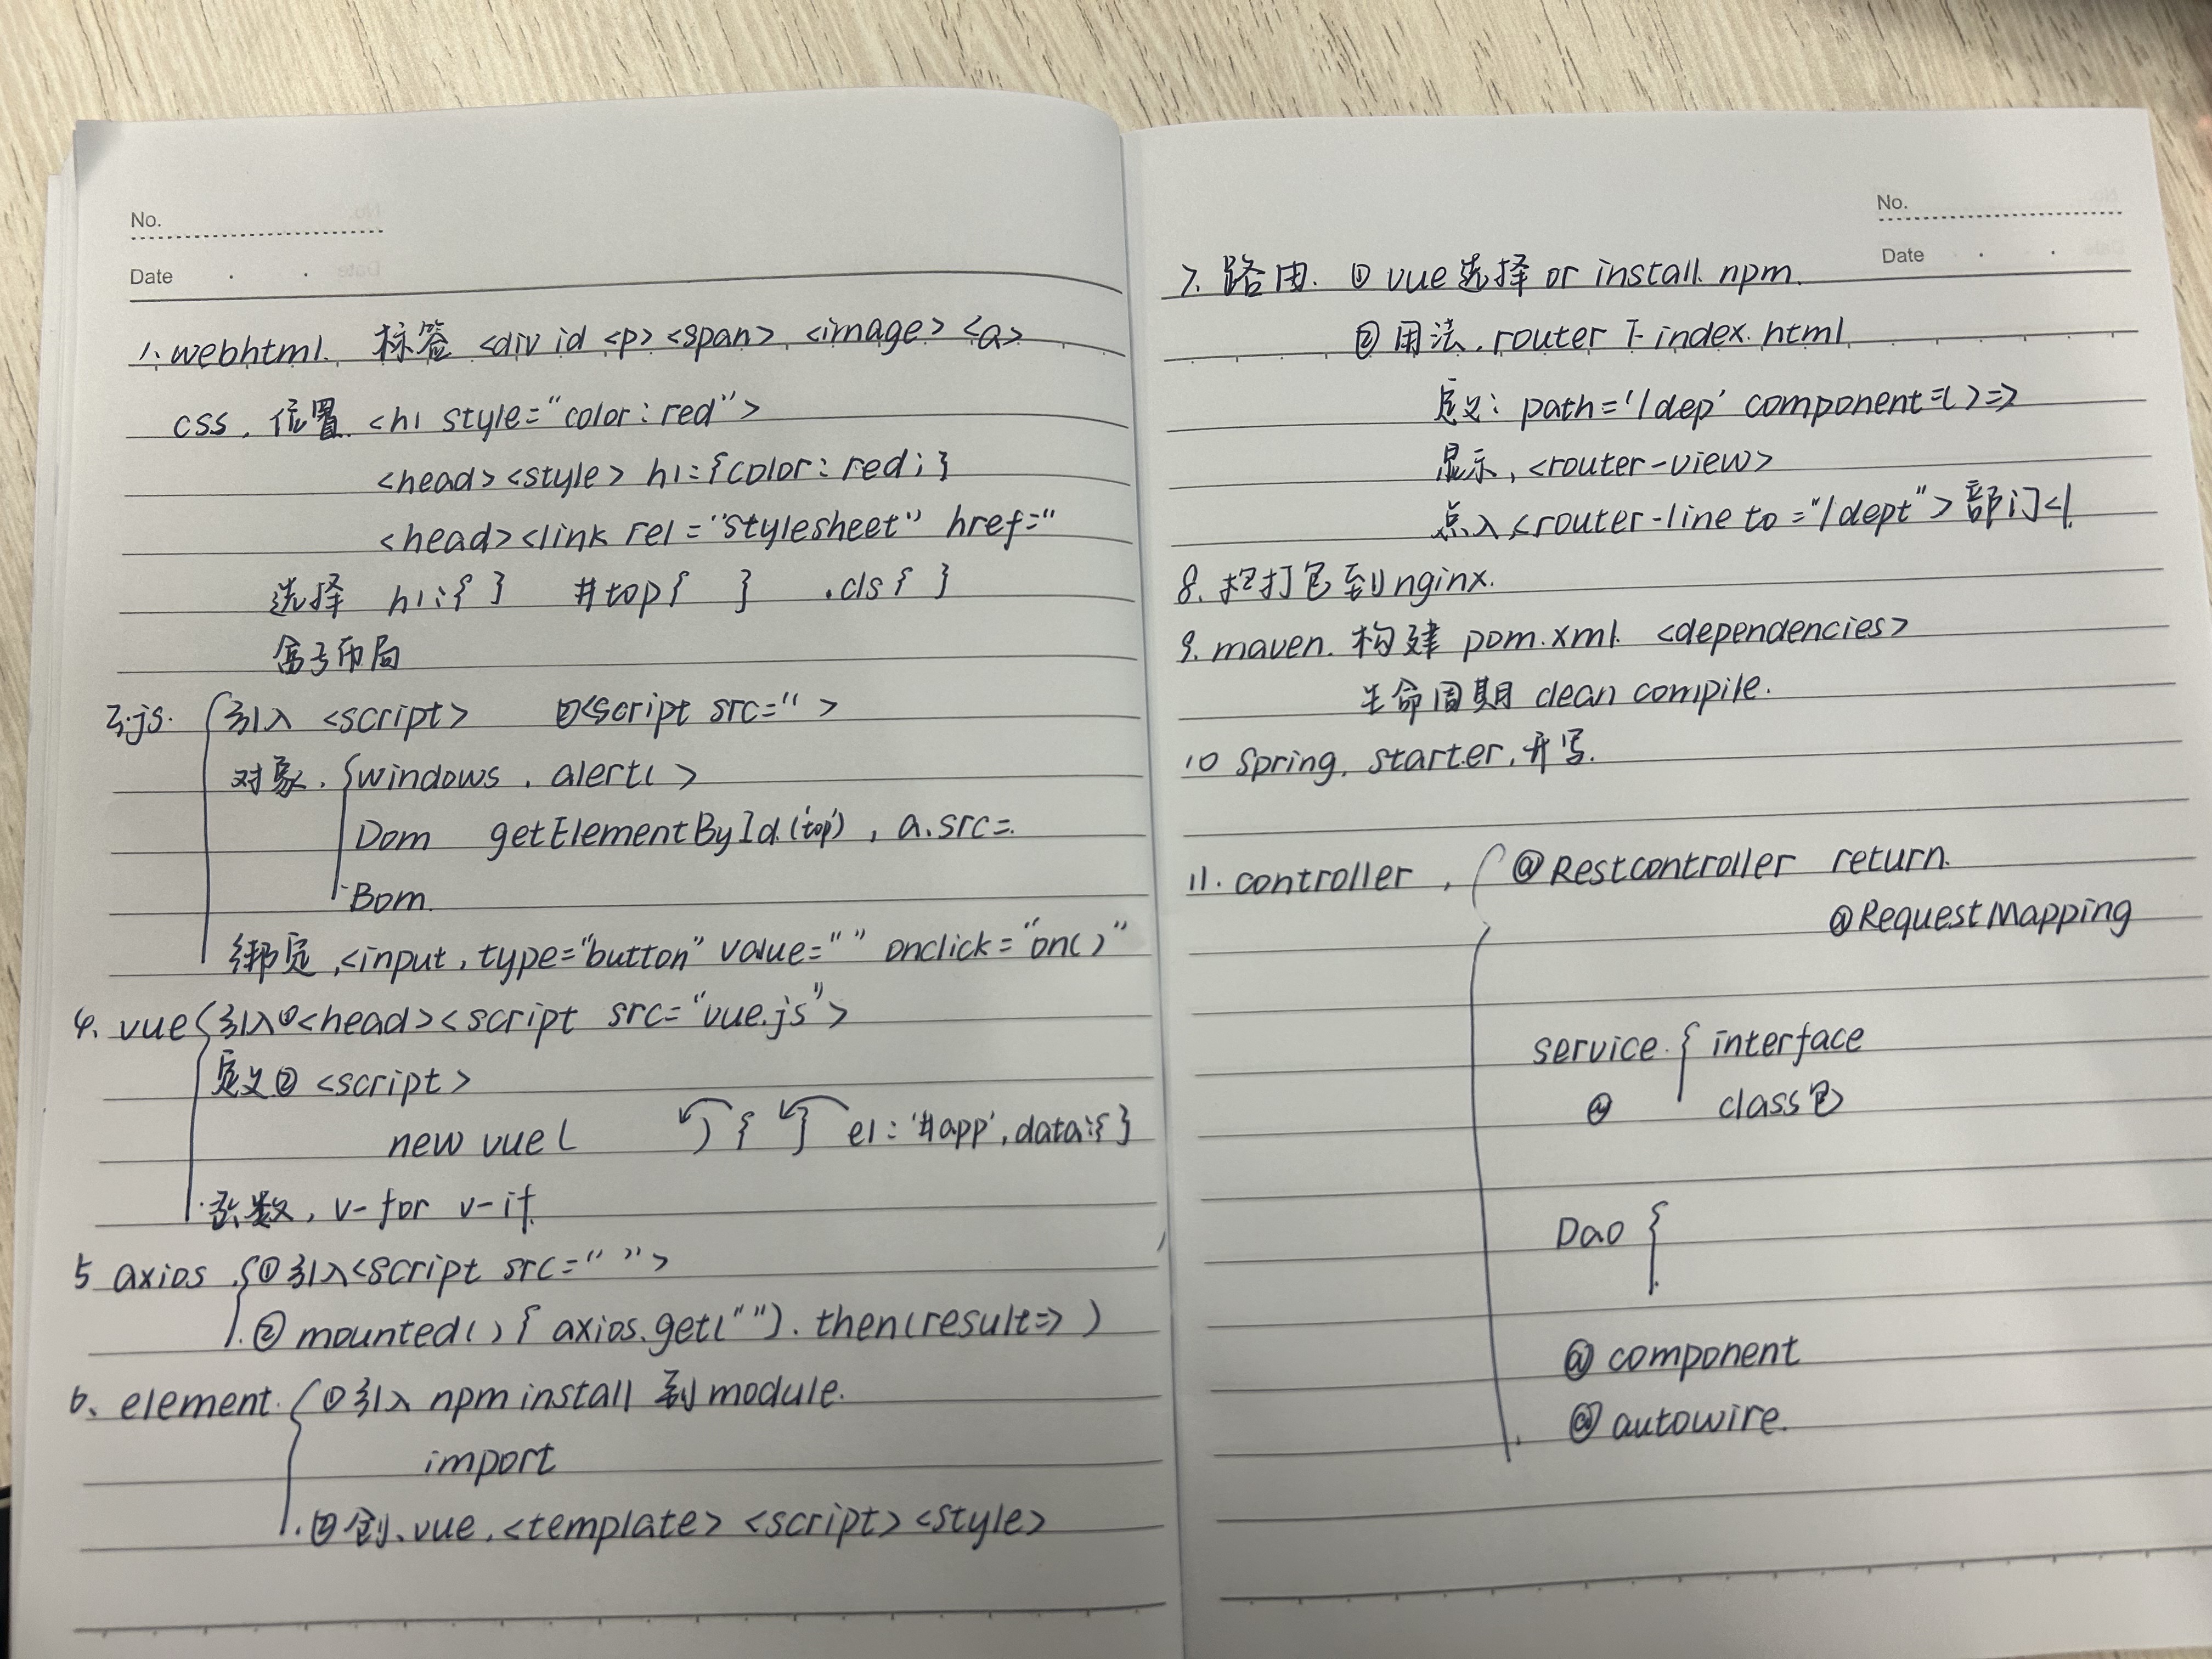 No.
Date
1. webhtml. 标签 <div id <p> <span> <image> <a>
css. 位置. <h1 style="color: red">
<head><style> h1:{color: red;}
<head><link rel="stylesheet" href="
选择 h1:{ } #top{ } .cls{ }
盒子布局
3.js. 引入 <script> ②<script src=" >
对象. windows. alert( )
Dom getElementById.('top'), a.src=.
Bom.
绑定.<input, type="button" value=" " onclick="on()"
4. vue 引入①<head><script src="vue.js">
定义② <script>
new vue( ) { } el: '#app', data:{ }
函数, v-for v-if.
5 axios ①引入<script src=" ">
②mounted() { axios.get(" "). then(result=> )
6. element. ①引入 npm install 到 module.
import
②创.vue.<template> <script> <style>
No.
Date
7. 路由. ① vue选择 or install. npm.
②用法. router下 index.html
定义: path='/dep' component=( )=>
显示, <router-view>
点入<router-line to="/dept">部门</
8. 打包到nginx.
9. maven. 构建 pom.xml. <dependencies>
生命周期 clean compile.
10 Spring. starter. 开写.
11. controller, @Restcontroller return.
@RequestMapping
service { interface
@ class包
Dao {
@ component
@ autowire.